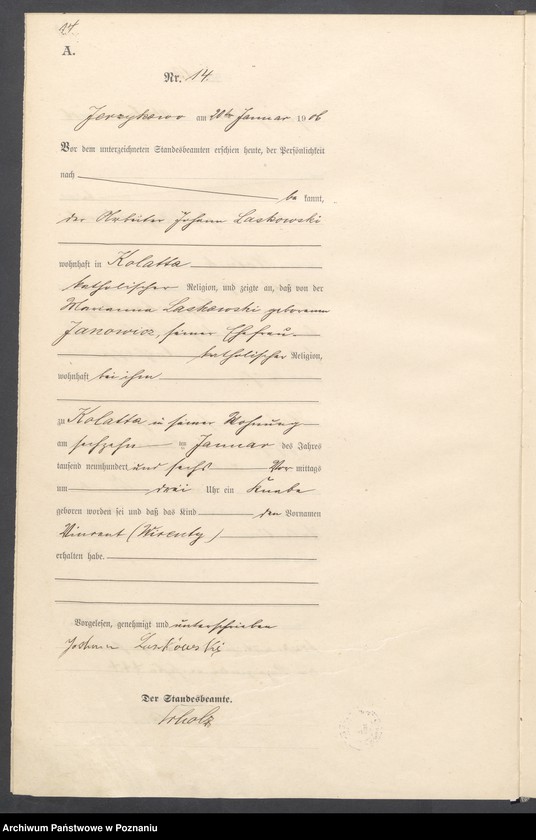 14
A.
Nr. 14.
Jerzykowo am 20ten Januar 1906
Vor dem unterzeichneten Standesbeamten erschien heute, der Persönlichkeit
nach
be kannt,
der Arbeiter Johann Laskowski
wohnhaft in Kolatta
katholischer Religion, und zeigte an, daß von der
Marianna Laskowski geborenen
Janowicz, seiner Ehefrau
katholischer Religion,
wohnhaft bei ihm
zu Kolatta in seiner Wohnung
am sechzehn ten Januar des Jahres
tausend neunhundert und sechs Vor mittags
um drei Uhr ein Knabe
geboren worden sei und daß das Kind den Vornamen
Vincent (Wicenty)
erhalten habe.
Vorgelesen, genehmigt und unterschrieben
Johann Laskowski
Der Standesbeamte.
Archiwum Państwowe w Poznaniu